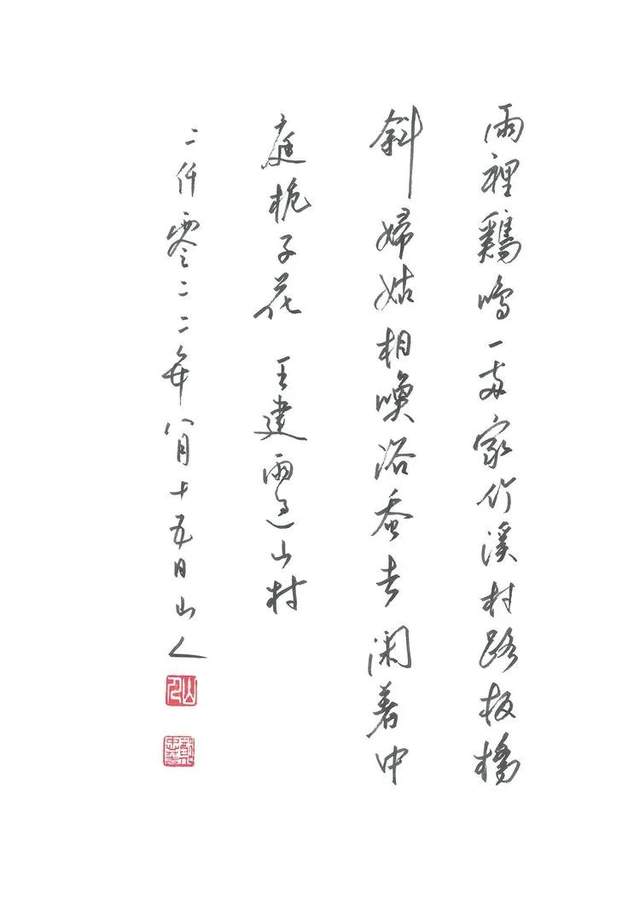 雨裡鷄鳴一两家竹溪村路板橋
斜婦姑相喚浴蚕去闲著中
庭栀子花 王建雨过山村
二仟零二二年八月十五日山人
山人